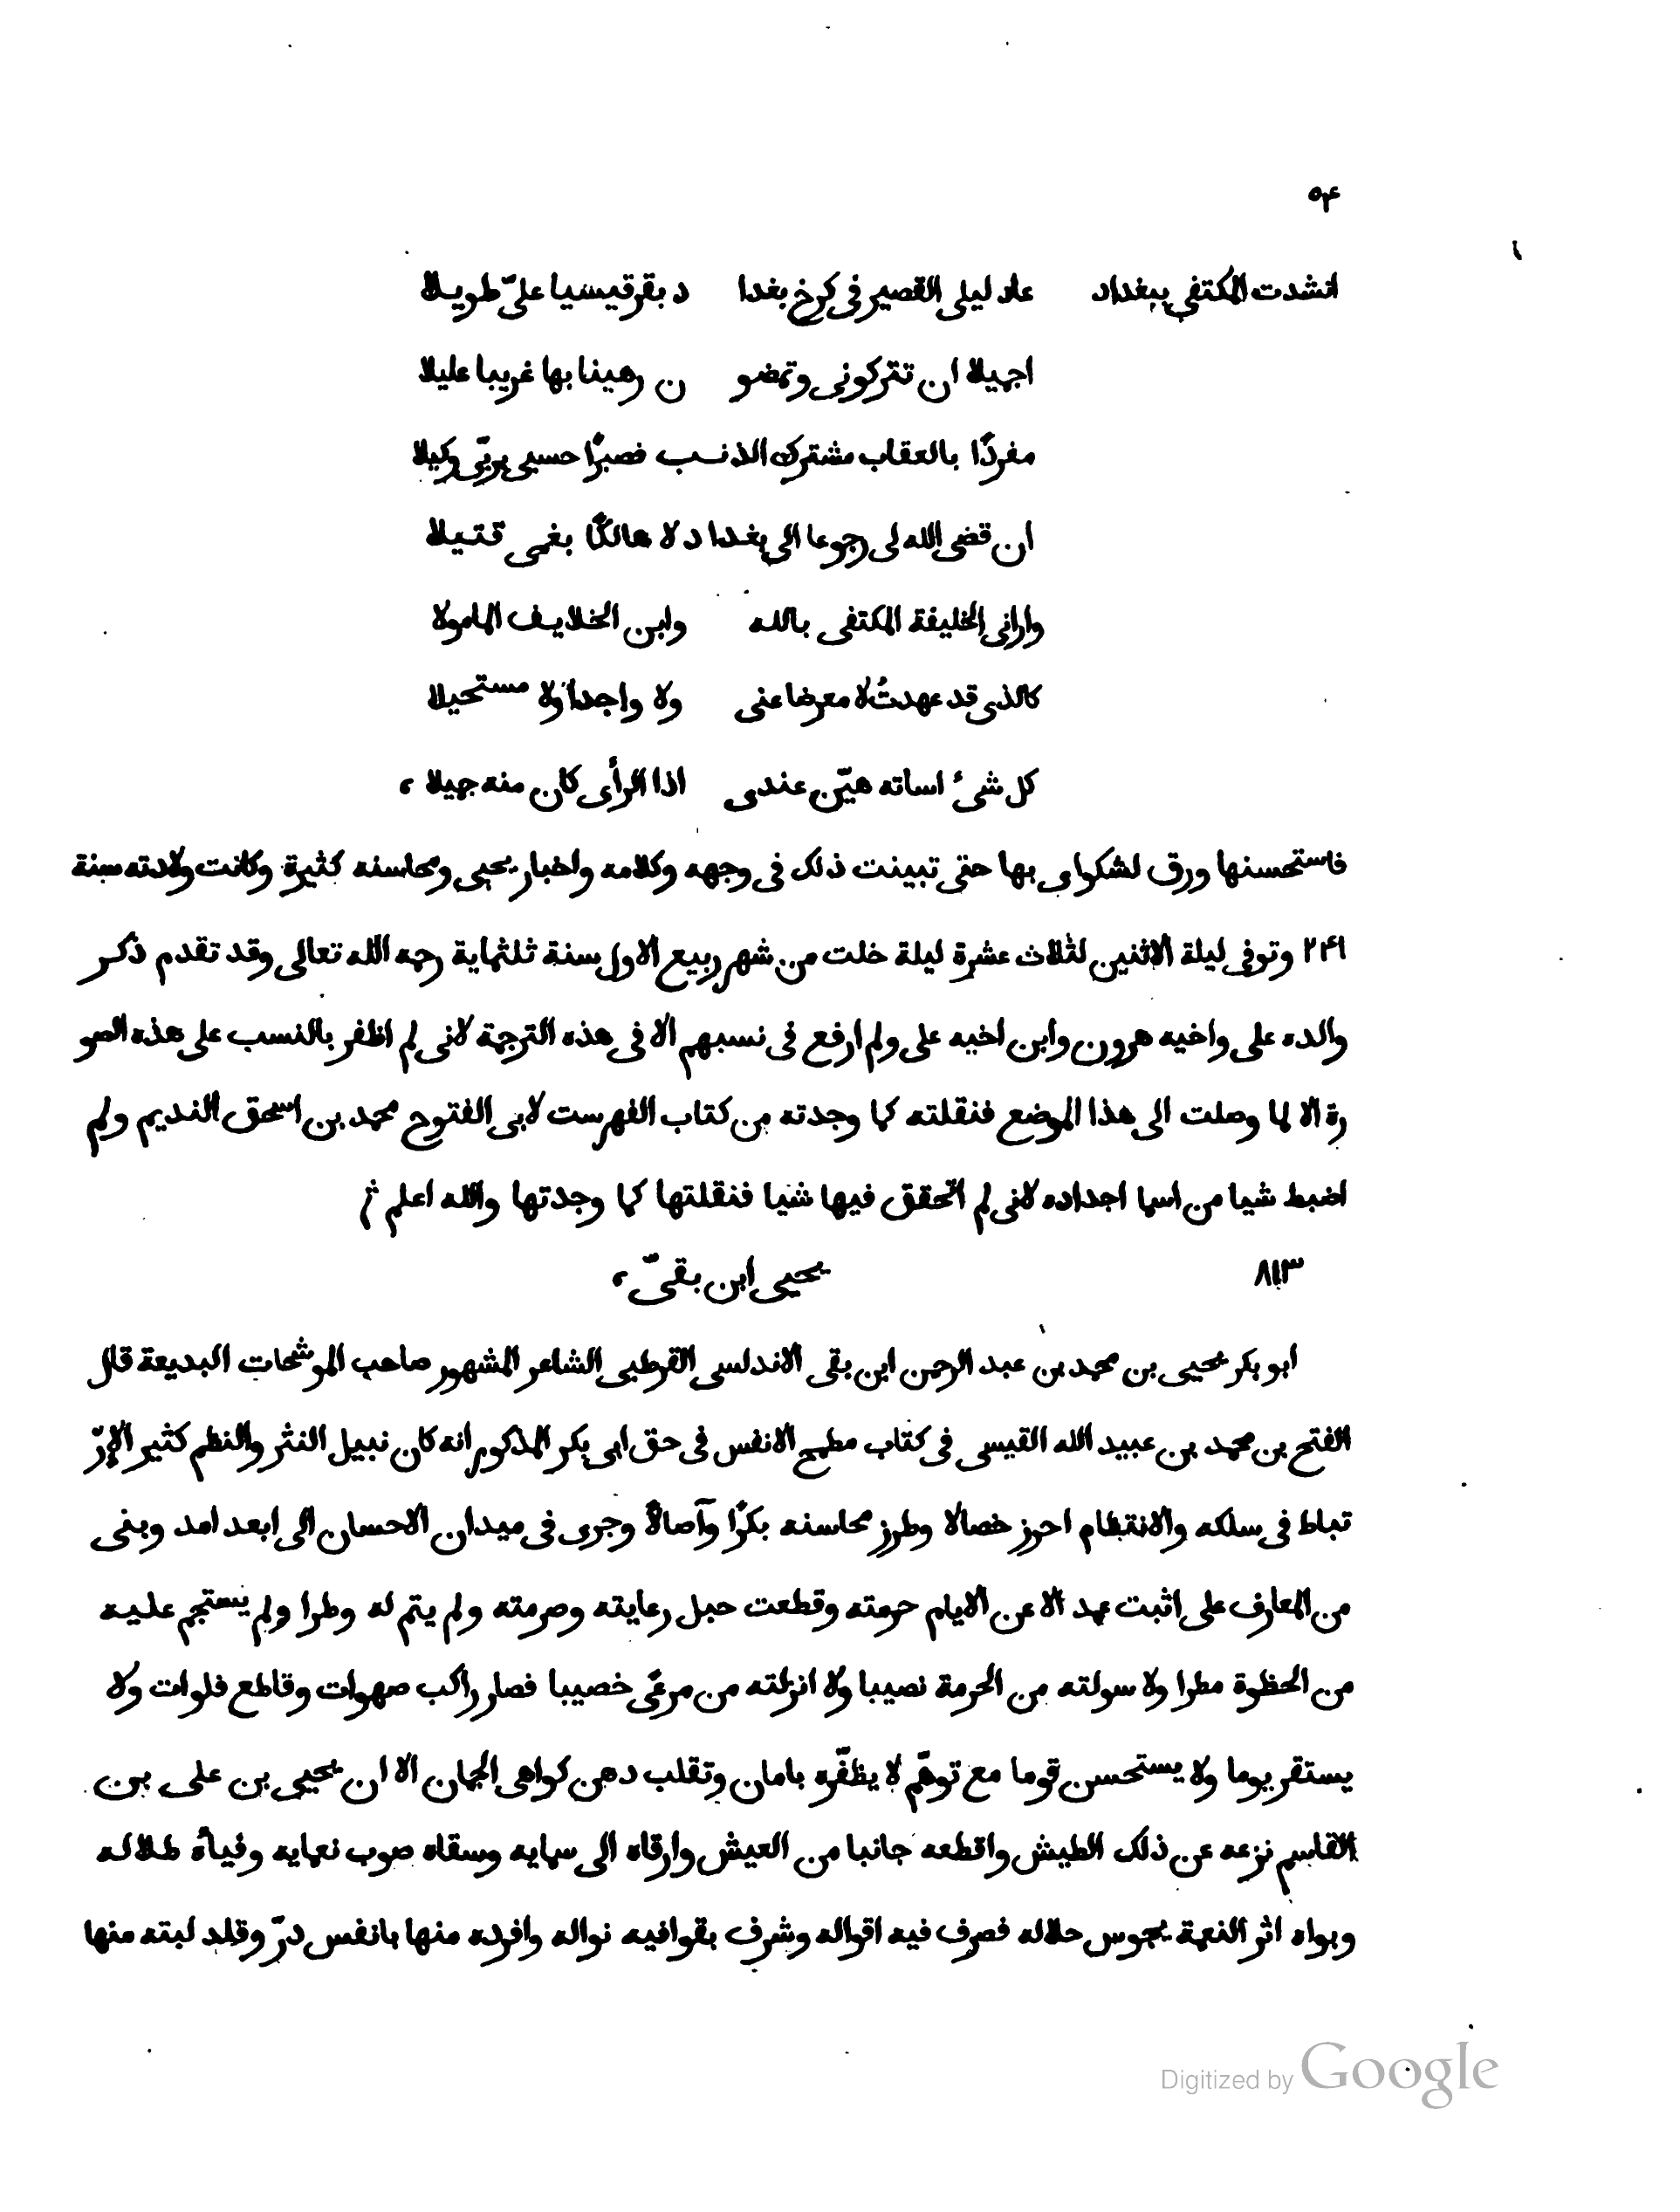 ٥۴
انشدت المكتفى ببغداد عاد ليلى القصير فى كرخ بغدا د بقرقيسيا علىّ طويلا
اجميلا ان تتركونى وتمضو ن رهينا بها غريبا عليلا
مفردًا بالعقاب مشترك الذنـب فصبرًا حسبى بربّى وكيلا
ان قضى الله لى رجوعا الى بغداد لا هالكًا بغمى قتيلا
وارانى الخليفة المكتفى بالله وابن الخلايف المامولا
كالذى قد عهدتُ لا معرضا عنى ولا واجدا ولا مستحيلا
كل شئ اساته هيّن عندى اذا الرأى كان منه جميلا ،
فاستحسنها ورق لشكواى بها حتى تبينت ذلك فى وجهه وكلامه واخبار يحيى ومحاسنه كثيرة وكانت ولادته سنة
٢۴١ وتوفى ليلة الاثنين لثلاث عشرة ليلة خلت من شهر ربيع الاول سنة ثلثماية رحمه الله تعالى وقد تقدم ذكر
والده على واخيه هرون وابن اخيه على ولم ارفع فى نسبهم الا فى هذه الترجمة لانى لم اظفر بالنسب على هذه الصو
رة الا لما وصلت الى هذا الموضع فنقلته كما وجدته من كتاب الفهرست لابى الفتوح محمد بن اسحق النديم ولم
اضبط شيا من اسما اجداده لانى لم اتحقق فيها شيا فنقلتها كما وجدتها والله اعلم
٨١٣ يحيى ابن بقىّ ،
ابو بكر يحيى بن محمد بن عبد الرحمن ابن بقى الاندلسى القرطبى الشاعر المشهور صاحب الموشحات البديعة قال
الفتح بن محمد بن عبيد الله القيسى فى كتاب مطمح الانفس فى حق ابى بكر المذكور انه كان نبيل النثر والنظم كثير الإرّ
تباط فى سلكه والانتظام احرز خصالا وطرز محاسنه بكرًا وآصالاً وجرى فى ميدان الاحسان الى ابعد امد وبنى
من المعارف على اثبت عمد الا عن الايام حرمته وقطعت حبل رعايته وصرمته ولم يتم له وطرا ولم يستجم عليه
من الحظوة مطرا ولا سولته من الحرمة نصيبا ولا انزلته من مرعًى خصيبا فصار راكب صهوات وقاطع فلوات ولا
يستقر يوما ولا يستحسن قوما مع توهّم لا يظفّره بامان وتقلب دهن كواهى الجمان الا ان يحيى بن على بن
القاسم نزعه عن ذلك الطيش واقطعه جانبا من العيش وارقاه الى سمايه وسقاه صوب نعمايه وفيأه ظلاله
وبواه اثر النعمة يجوس حلاله فصرف فيه اقواله وشرف بقوافيه نواله وافرده منها بانفس درّ وقلد لبته منها
Digitized by Google